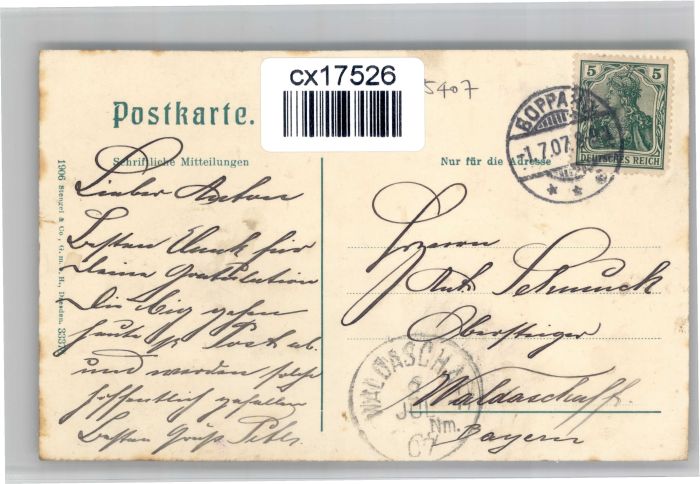 cx17526
5407
Postkarte.
Schriftliche Mitteilungen
Nur für die Adresse
BOPPARD
1.7.07.
5 5
DEUTSCHES REICH
1906 Stengel & Co., G. m. b. H., Dresden.
Lieber Anton
Besten Dank für
Deine Gratulation
Die Cig gehen
heute per Post ab.
und werden solche
hoffentlich gefallen
Besten Gruß
Herrn
Ant. Schmuck
Obersteiger
Waldaschaff.
Bayern
WALDASCHAFF
2
JUL
Nm.
07